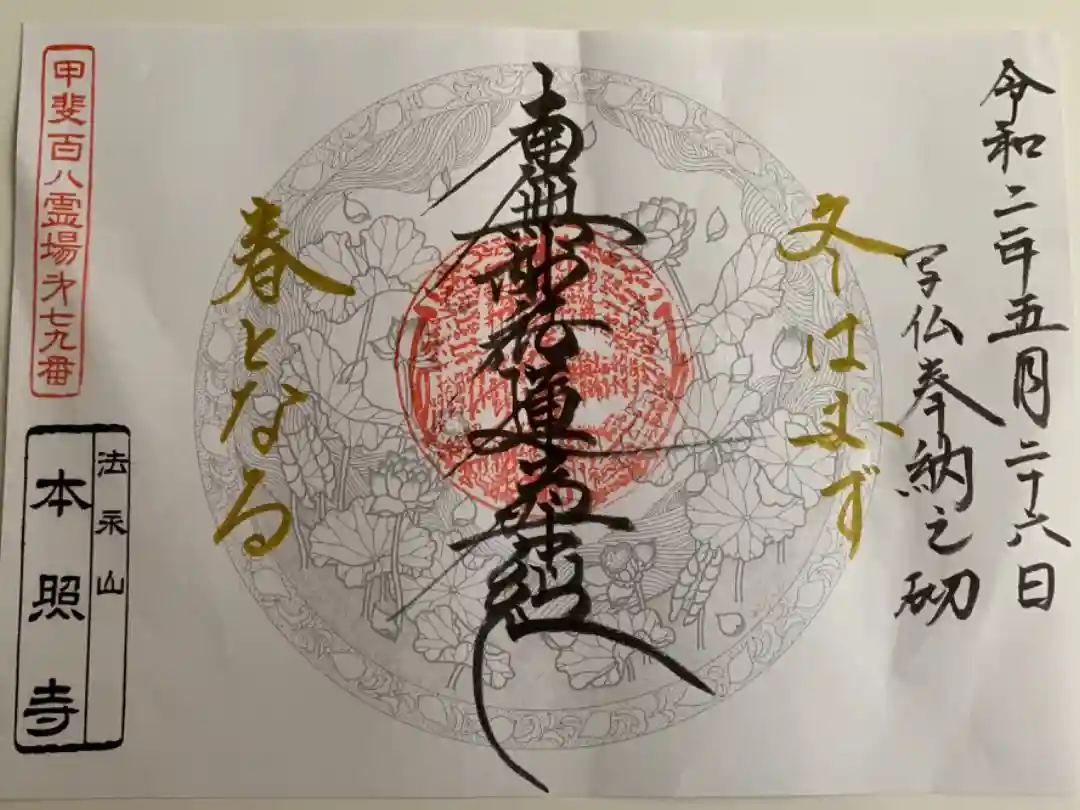 令和二年五月二十六日
写仏奉納之砌
冬は必ず
南無妙法蓮華経
春となる
甲斐百八霊場第七九番
法永山
本照寺